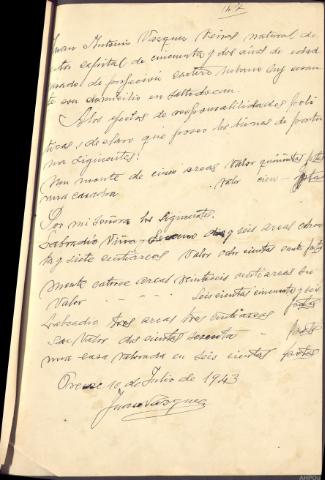 147
Juan Antonio Vazquez Veiras natural de
esta capital de cincuenta y dos años de edad
casado de profesión cartero urbano hoy vacan
te con domicilio en
A los efectos de responsabilidades poli
ticas, declaro que poseo los bienes de fortu
na siguientes:
Un monte de cinco areas valor quinientas ptas
una casa valor cien - ptas
Por mi señora los siguientes.
Labradio Viña y seis areas
ta y siete centiareas valor ochocientas ptas
Monte catorce areas veintiseis centiareas su
valor - - - - seiscientas cincuenta y
Labradio tres areas tres centiareas ptas
su valor doscientas sesenta - ptas
una casa valorada en seis cientas ptas
Orense 10 de Julio de 1943
Juan Vazquez
AHPOU